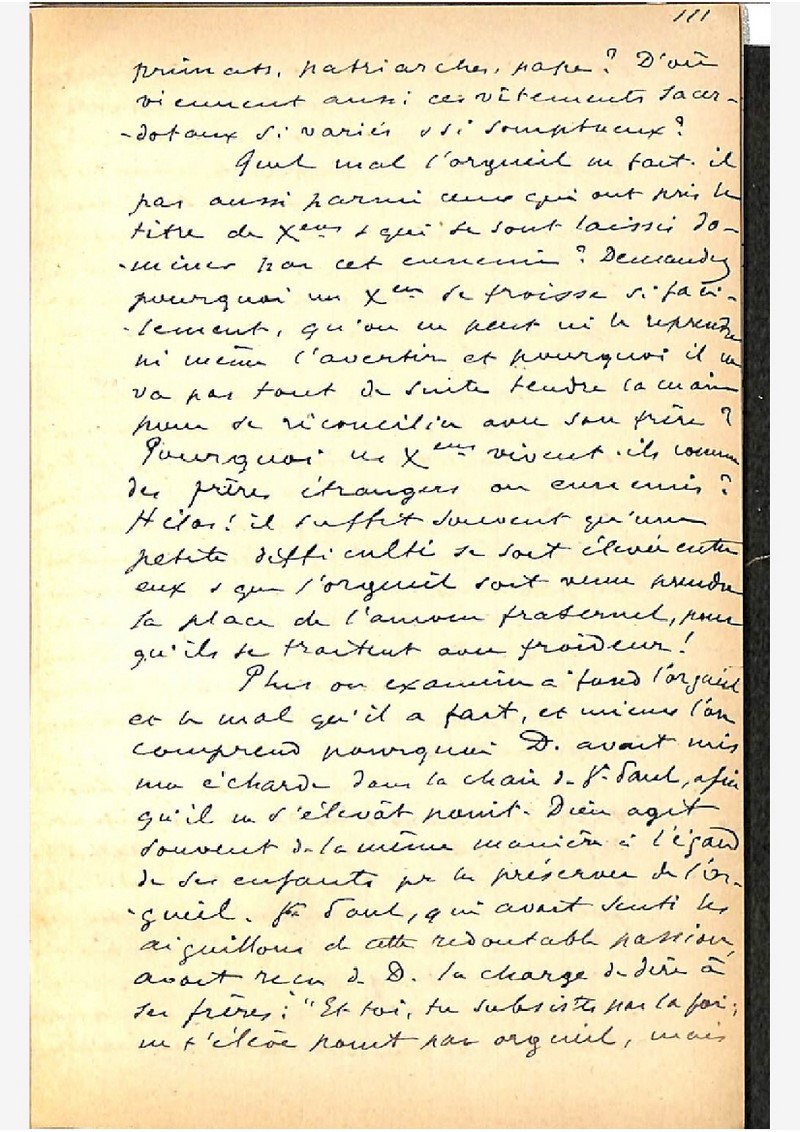 111
primats, patriarches, pape? D'où
viennent aussi ces vêtements sacer-
-dotaux si variés & si somptueux?
Quel mal l'orgueil ne fait-il
pas aussi parmi ceux qui ont pris le
titre de Xens & qui se sont laissés do-
-miner par cet ennemi? Demandez
pourquoi un Xen se froisse si faci-
-lement, qu'on ne peut ni le reprendre
ni même l'avertir et pourquoi il ne
va pas tout de suite tendre la main
pour se réconcilier avec son frère?
Pourquoi les Xens vivent-ils comme
des frères étrangers ou ennemis?
Hélas! il suffit souvent qu'une
petite difficulté se soit élevée entre
eux & que l'orgueil soit venu prendre
la place de l'amour fraternel, pour
qu'ils se traitent avec froideur!
Plus on examine à fond l'orgueil
et le mal qu'il a fait, et mieux l'on
comprend pourquoi D. avait mis
une écharde dans la chair de St. Paul, afin
qu'il ne s'élevât point. Dieu agit
souvent de la même manière à l'égard
de ses enfants pr les préserver de l'or-
-gueil. St. Paul, qui avait senti les
aiguillons de cette redoutable passion,
avait reçu de D. la charge de dire à
ses frères: "Et toi, tu subsistes par la foi;
ne t'élève point par orgueil, mais